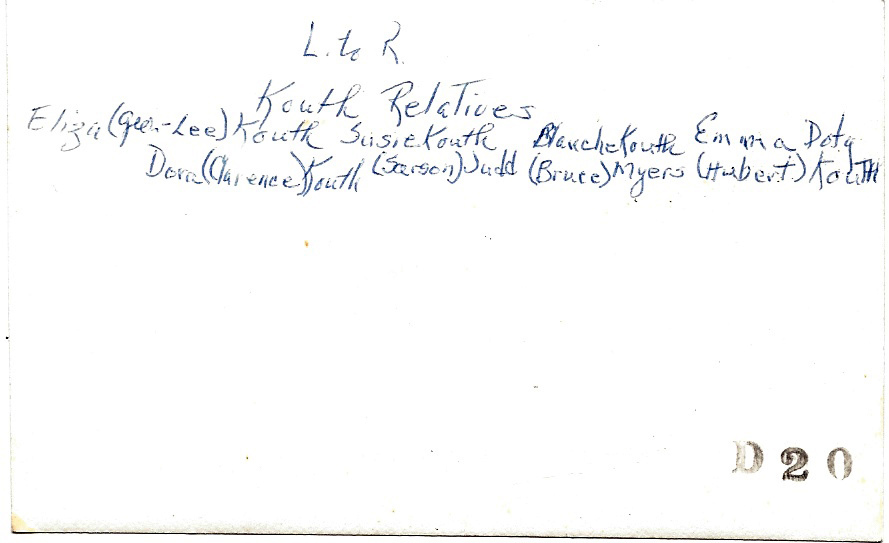 L. to R.
Kouth Relatives
Eliza (Geo-Lee) Kouth Susie Kouth Blanche Kouth Emma Doty
Dora (Clarence) Kouth (Sarson) Judd (Bruce) Myers (Hubert) Kouth
D 2 0